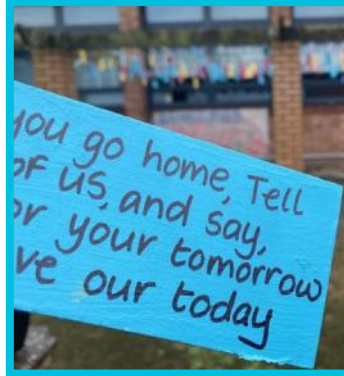 you go home, Tell
of us, and say,
your tomorrow
our today